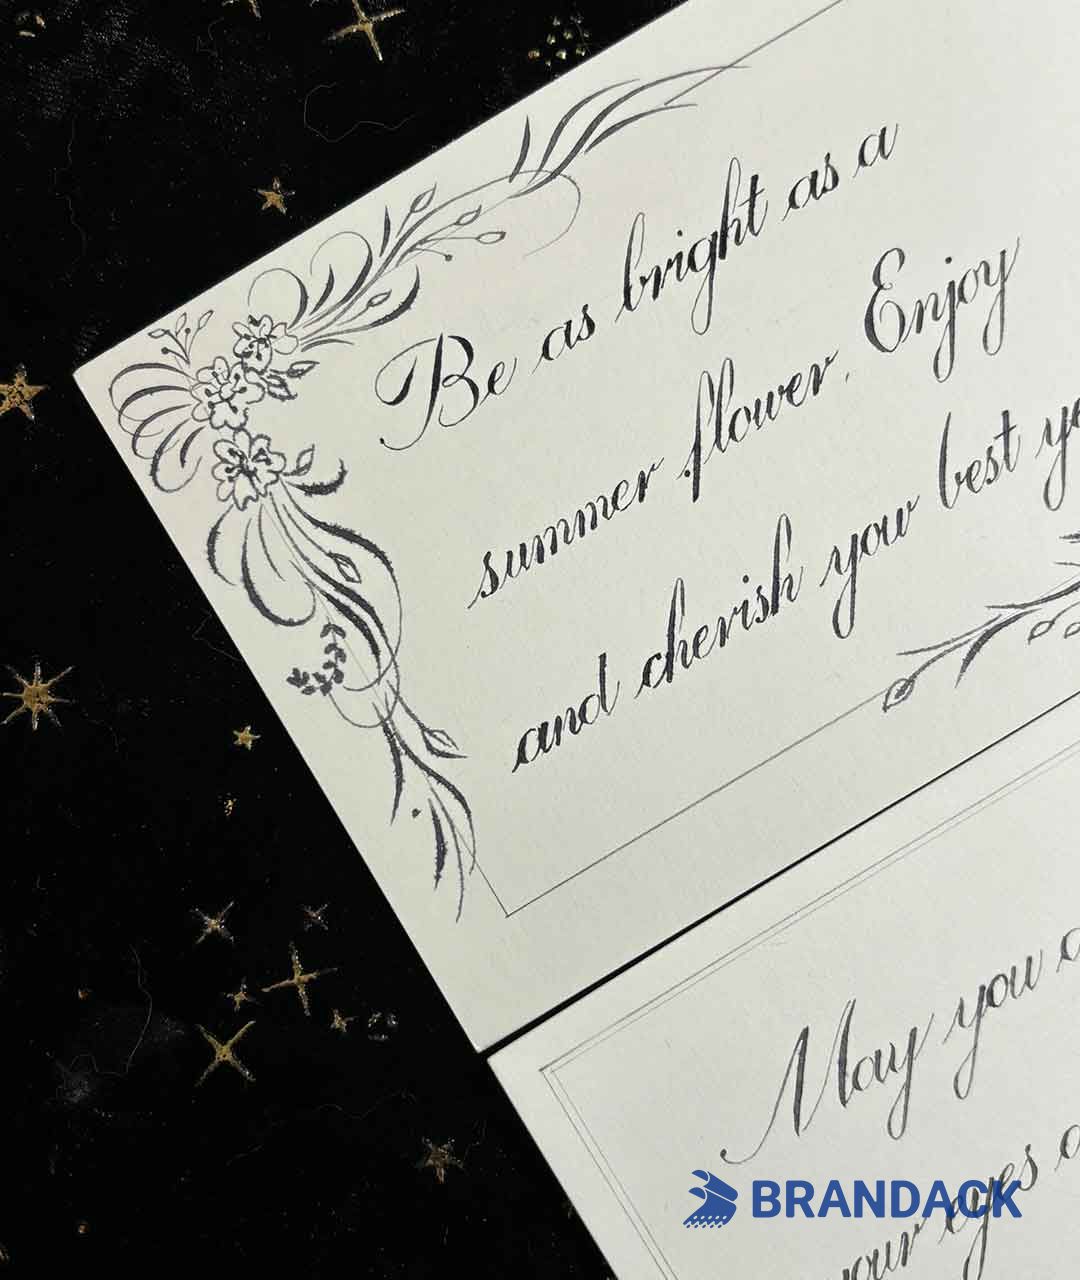 Be as bright as a
summer flower. Enjoy
and cherish your best
May you
your eyes
BRANDACK